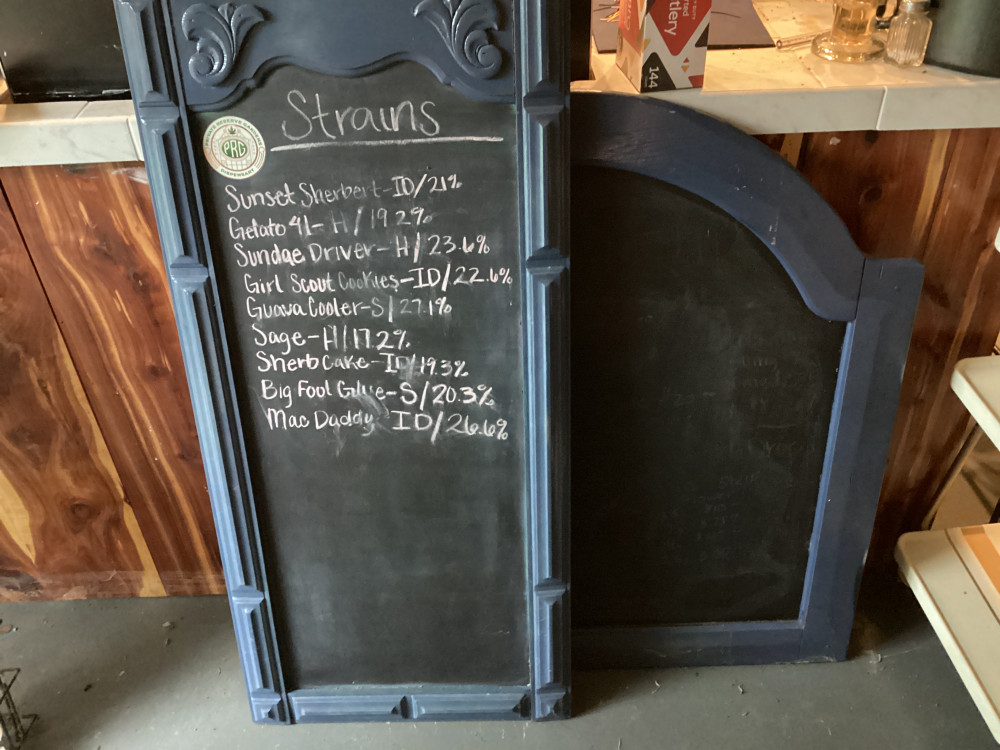 Strains
PRIVATE RESERVE GENETICS
PRG
DISPENSARY
Sunset Sherbert-ID/21%
Gelato 41-H/19.2%
Sundae Driver-H/23.6%
Girl Scout Cookies-ID/22.6%
Guava Cooler-S/27.1%
Sage-H/17.2%
Sherb Cake-ID/19.3%
Big Foot Glue-S/20.3%
Mac Daddy ID/26.6%
tlery
144